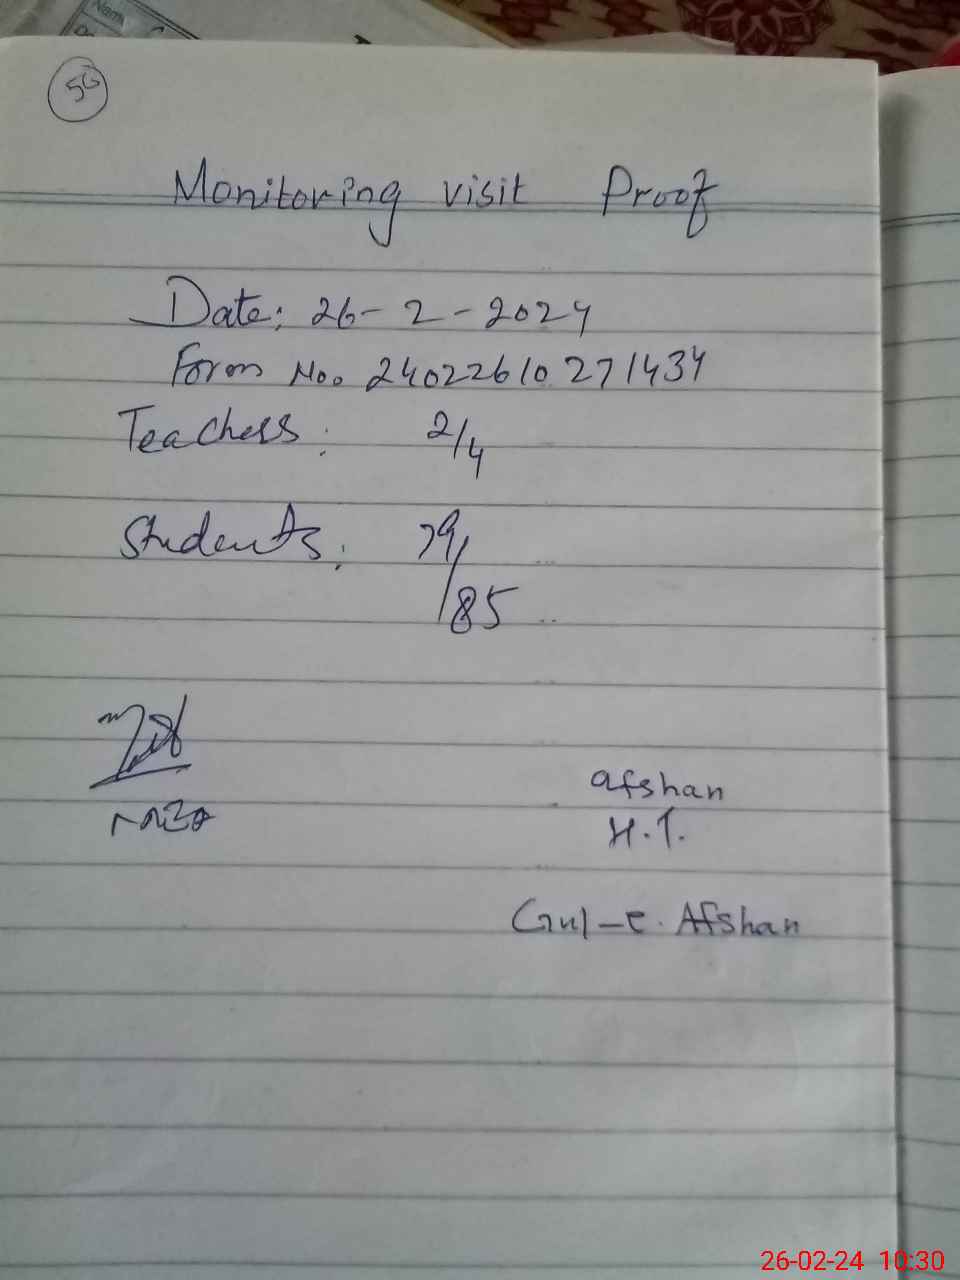 Monitoring visit Proof
Date: 26-2-2024
Form No. 24022610271434
Teachers: 2/4
Students: 79/85
afshan
H.T.
Gul-e. Afshan
26-02-24 10:30